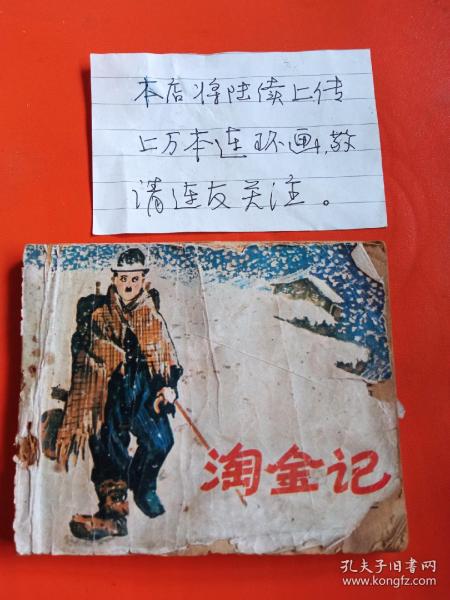 本店将陆续上传
上万本连环画,敬
请连友关注。
淘金记
孔夫子旧书网
www.kongfz.com